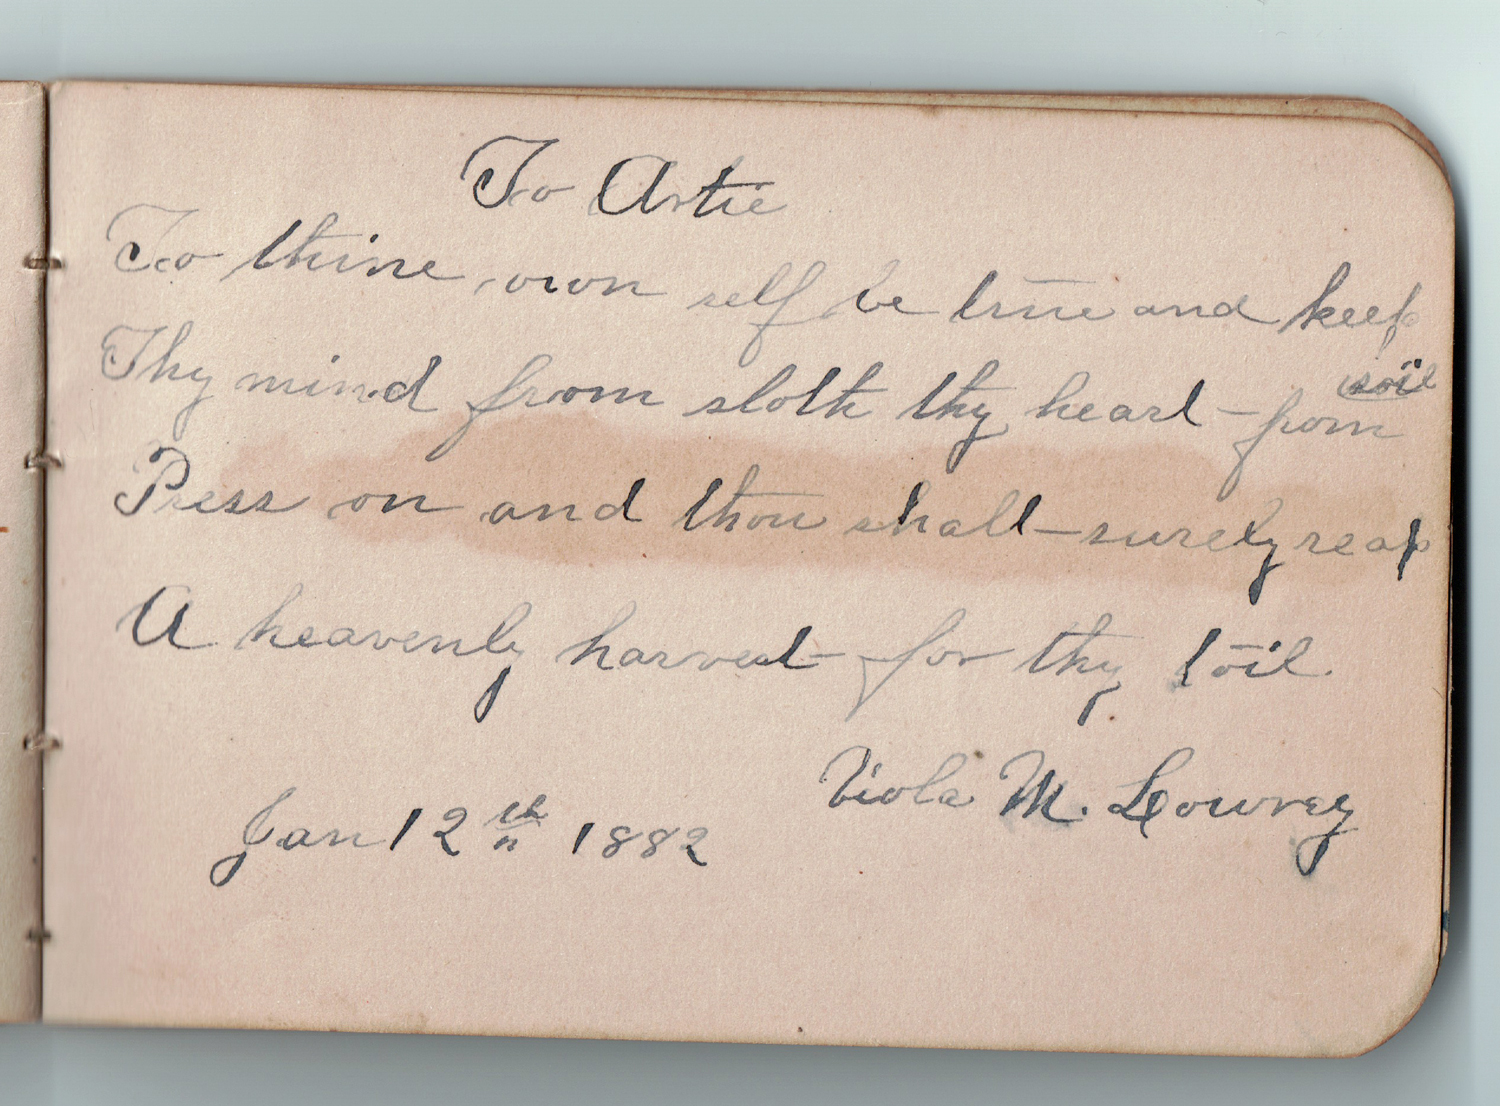 To Artie
To thine own self be true and keep
Thy mind from sloth thy heart from soil
Press on and thou shall surely reap
A heavenly harvest for thy toil.
Viola M. Lowrey
Jan 12th 1882